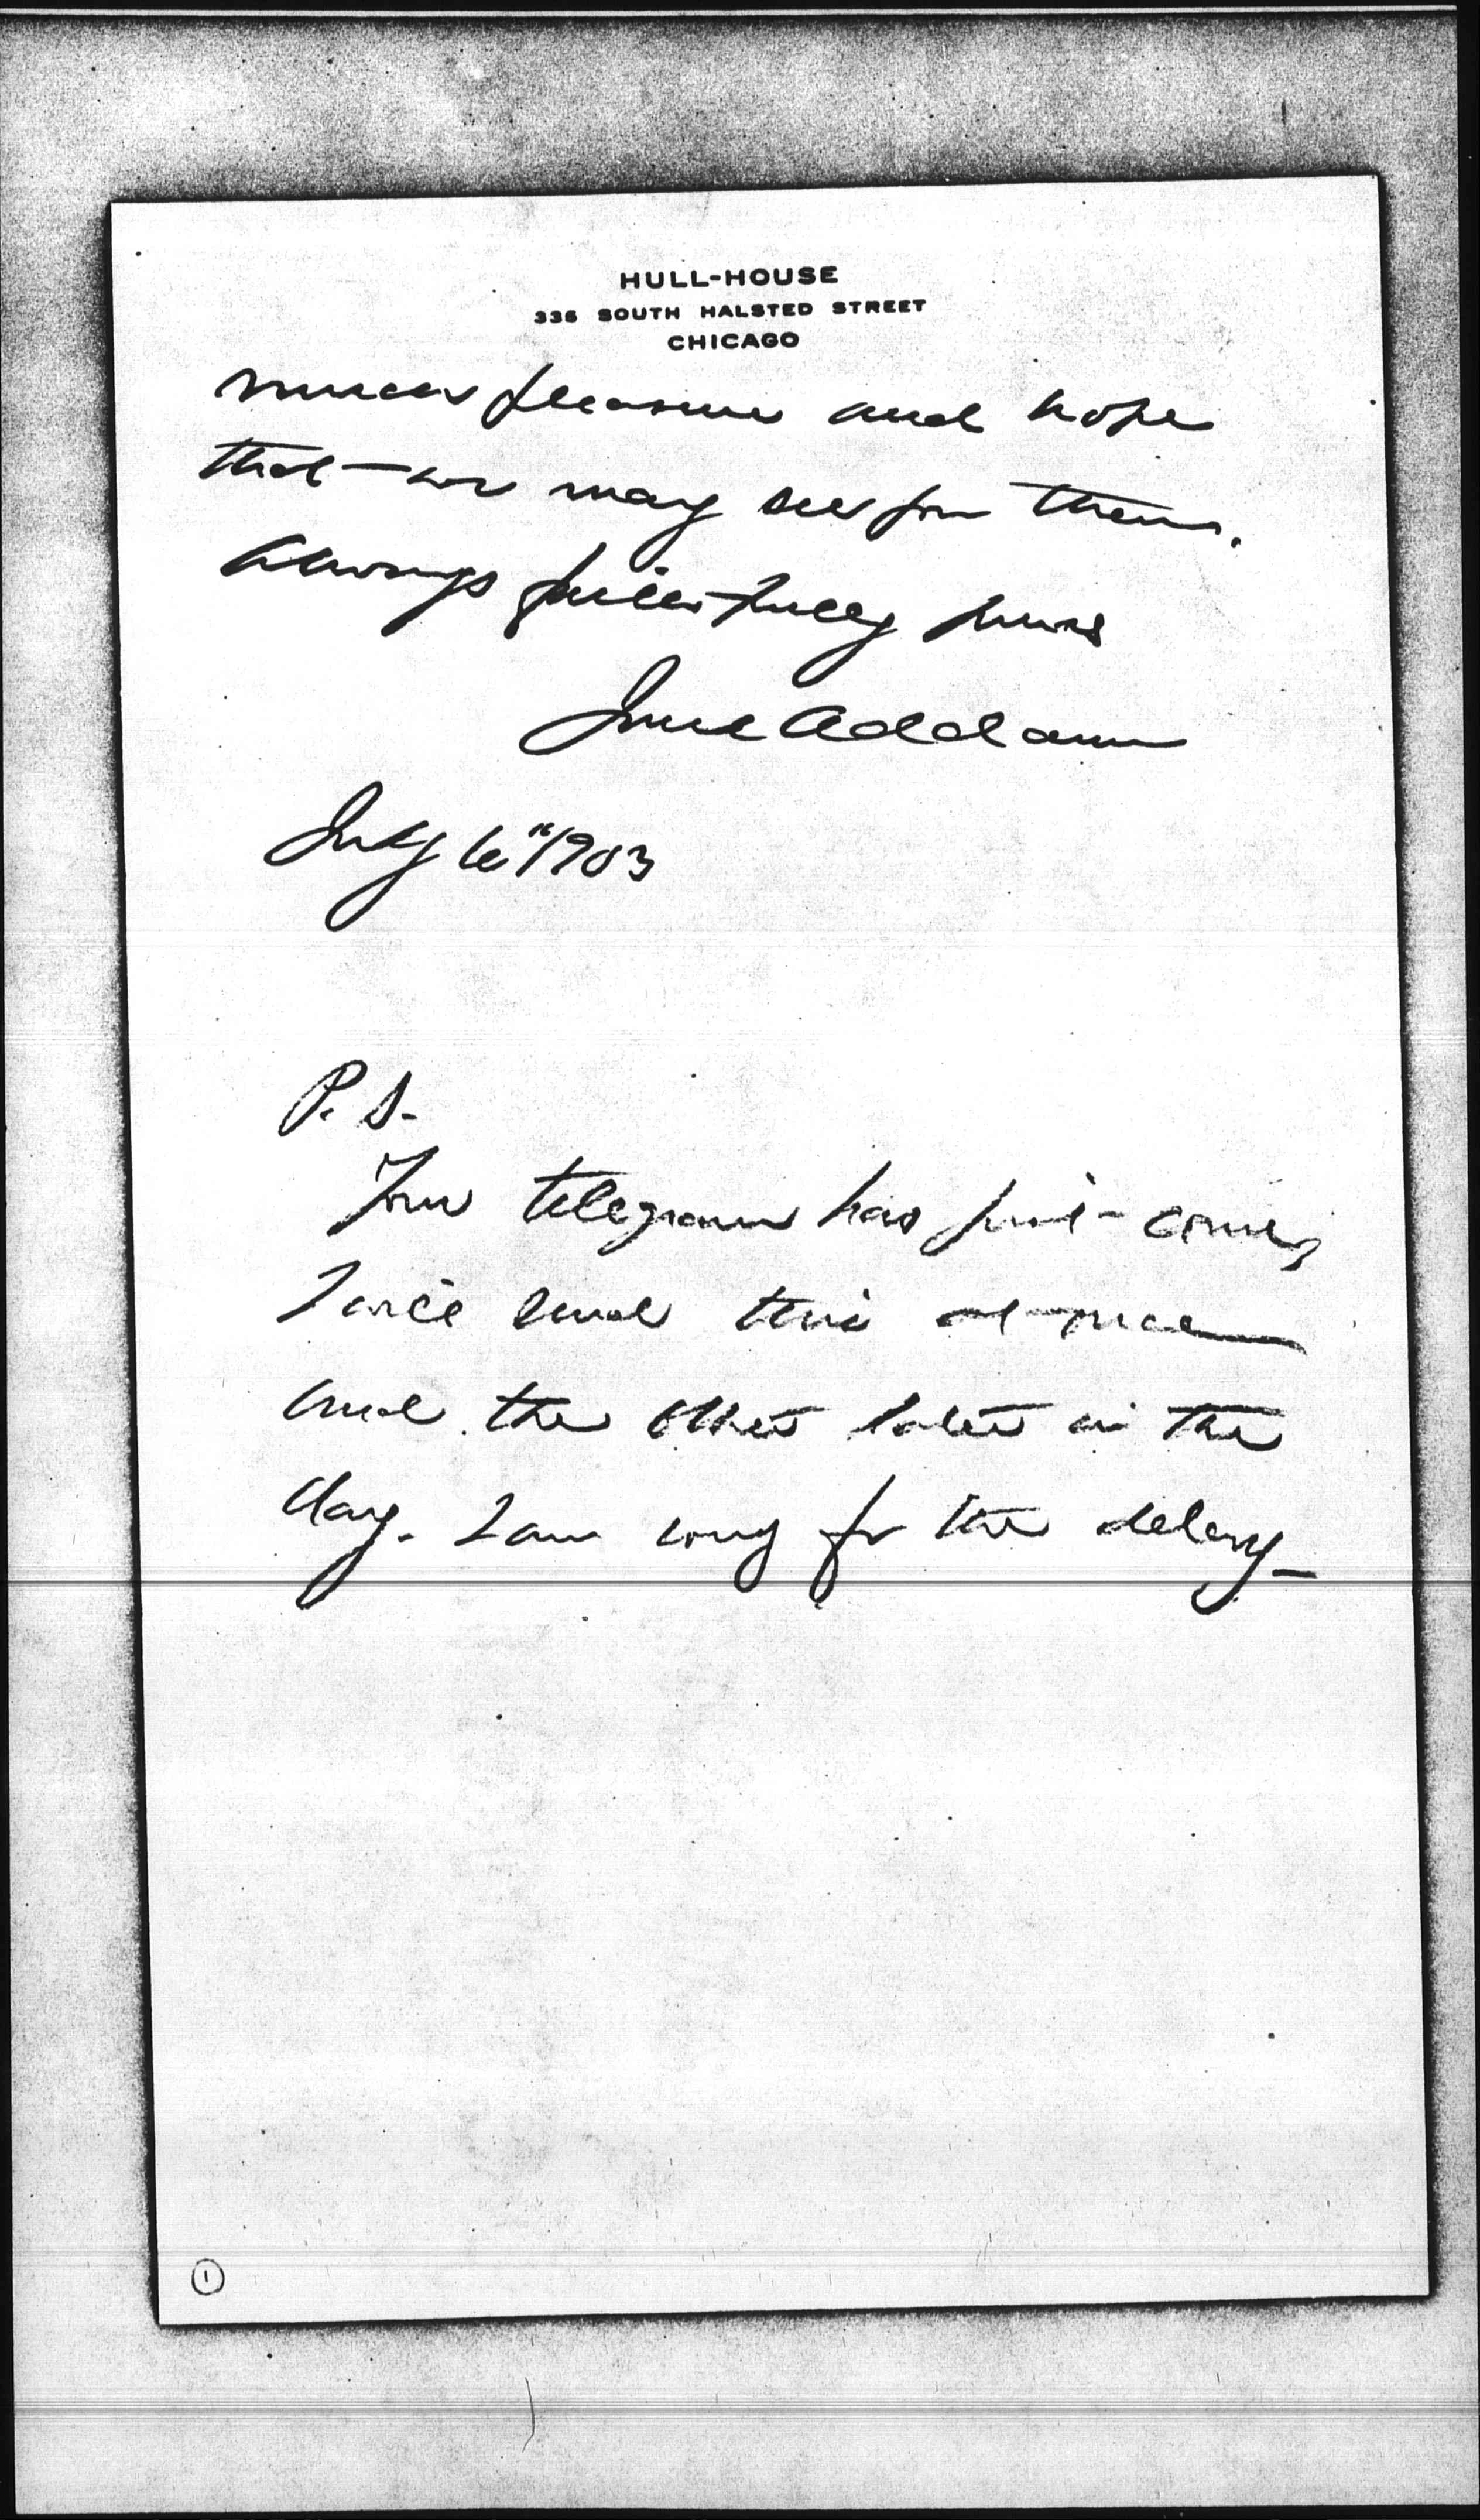 HULL-HOUSE
335 SOUTH HALSTED STREET
CHICAGO
much pleasure and hope
that we may see you then.
Always faithfully yours
Jane Addams
July 6" 1903
P. S.
Your telegram has just come,
I will send this at once
and the other later in the
day. I am sorry for the delay_
1